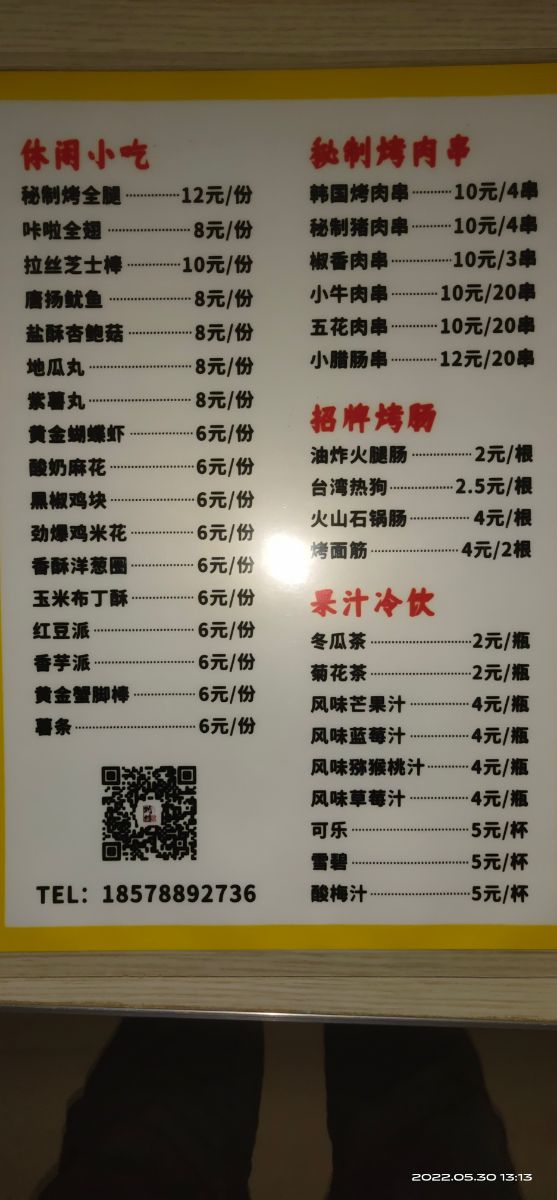 休闲小吃
秘制烤全腿············12元/份
咔啦全翅············8元/份
拉丝芝士棒············10元/份
唐扬鱿鱼············8元/份
盐酥杏鲍菇············8元/份
地瓜丸············8元/份
紫薯丸············8元/份
黄金蝴蝶虾············6元/份
酸奶麻花············6元/份
黑椒鸡块············6元/份
劲爆鸡米花············6元/份
香酥洋葱圈············6元/份
玉米布丁酥············6元/份
红豆派············6元/份
香芋派············6元/份
黄金蟹脚棒············6元/份
薯条············6元/份
TEL：18578892736
秘制烤肉串
韩国烤肉串·········10元/4串
秘制猪肉串·········10元/4串
椒香肉串·········10元/3串
小牛肉串·········10元/20串
五花肉串·········10元/20串
小腊肠串·········12元/20串
招牌烤肠
油炸火腿肠·········2元/根
台湾热狗·········2.5元/根
火山石锅肠·········4元/根
烤面筋·········4元/2根
果汁冷饮
冬瓜茶·········2元/瓶
菊花茶·········2元/瓶
风味芒果汁·········4元/瓶
风味蓝莓汁·········4元/瓶
风味猕猴桃汁·········4元/瓶
风味草莓汁·········4元/瓶
可乐·········5元/杯
雪碧·········5元/杯
酸梅汁·········5元/杯
2022.05.30 13:13